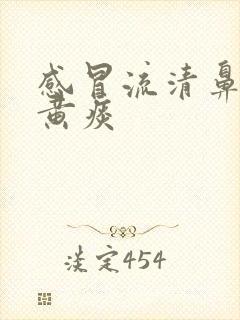 感冒流清鼻
黄痰
淡定454